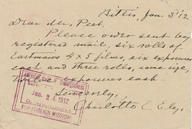 Bitlis, Jan. 3 '12
Dear Mr. Peet.
Please order sent by
registered mail, six rolls of
Eastmans 4 x 5 films, six exposures
each and three rolls, same size,
twelve exposures each.
Sincerely,
Charlotte E. Ely.
JAN 2 1912
FOREIGN MISSIONS